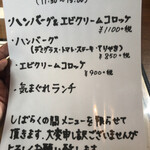 ・ハンバーグ&エビクリームコロッケ
¥1100+税
・ハンバーグ
(デミグラス・トマトスター・てりやき)
¥850+税
・エビクリームコロッケ
¥900+税
・気まぐれランチ
しばらくの間メニューを限らせて
頂きます。大変申し訳ございませんが